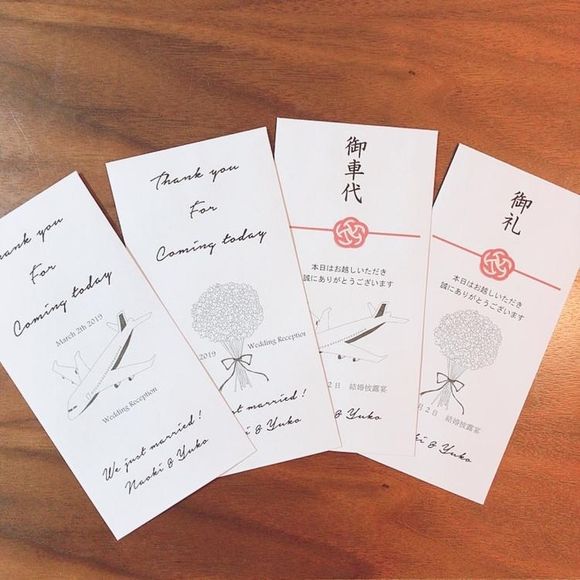 Thank you
For
Coming today
March 2th 2019
Wedding Reception
We just married!
Naoki & Yuko
Thank you
For
Coming today
2019
Wedding Reception
just married!
& Yuko
御車代
本日はお越しいただき
誠にありがとうございます
日 結婚披露宴
& Yuko
御礼
本日はお越しいただき
誠にありがとうございます
月2日 結婚披露宴
& Yuko